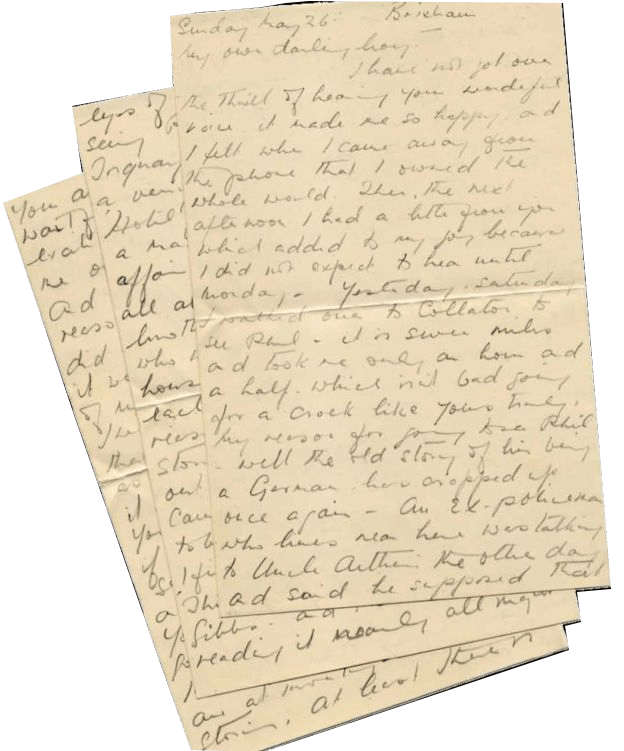 Sunday May 26. Brixham
My own darling boy.
I have not got over
the thrill of hearing your wonderful
voice. it made me so happy, and
I felt when I came away from
the phone that I owned the
whole world. Then, the next
afternoon I had a letter from you
which added to my joy because
I did not expect to hear until
Monday. Yesterday, Saturday,
I walked over to Collaton to
see Phil - it is seven miles
and took me only an hour and
a half. Which isn't bad going
for a crock like yours truly.
My reason for going to see Phil
- well the old story of his being
a German has cropped up
once again - An Ex-policeman
who lives near here was talking
to Uncle Arthur the other day
and said he supposed that
eyes of
seing
Torquay
a
Hotel
a
affair
all
who
hous
each
stor
out
came
to
I
The
Gibbs. and
reading it nearly all
You a
want
me o
ad
reaso
did
it
of
the
as
it
Yo
if
are at
stories. at least there